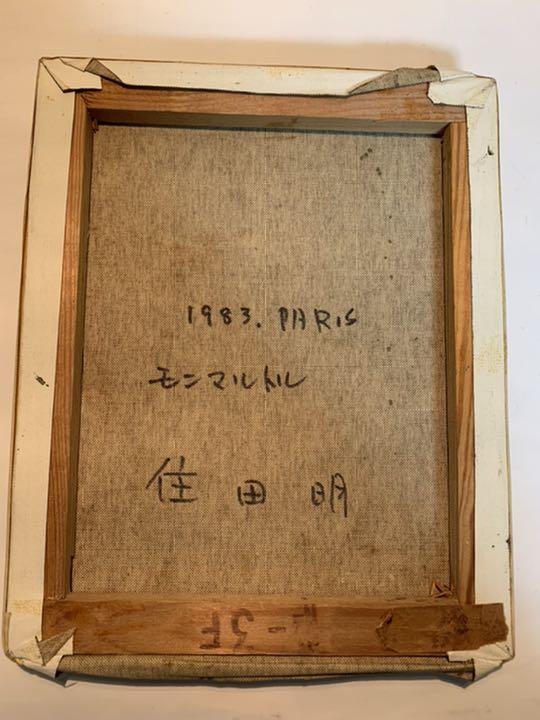 1983. PARIS
モンマルトル
住田明
F-3F